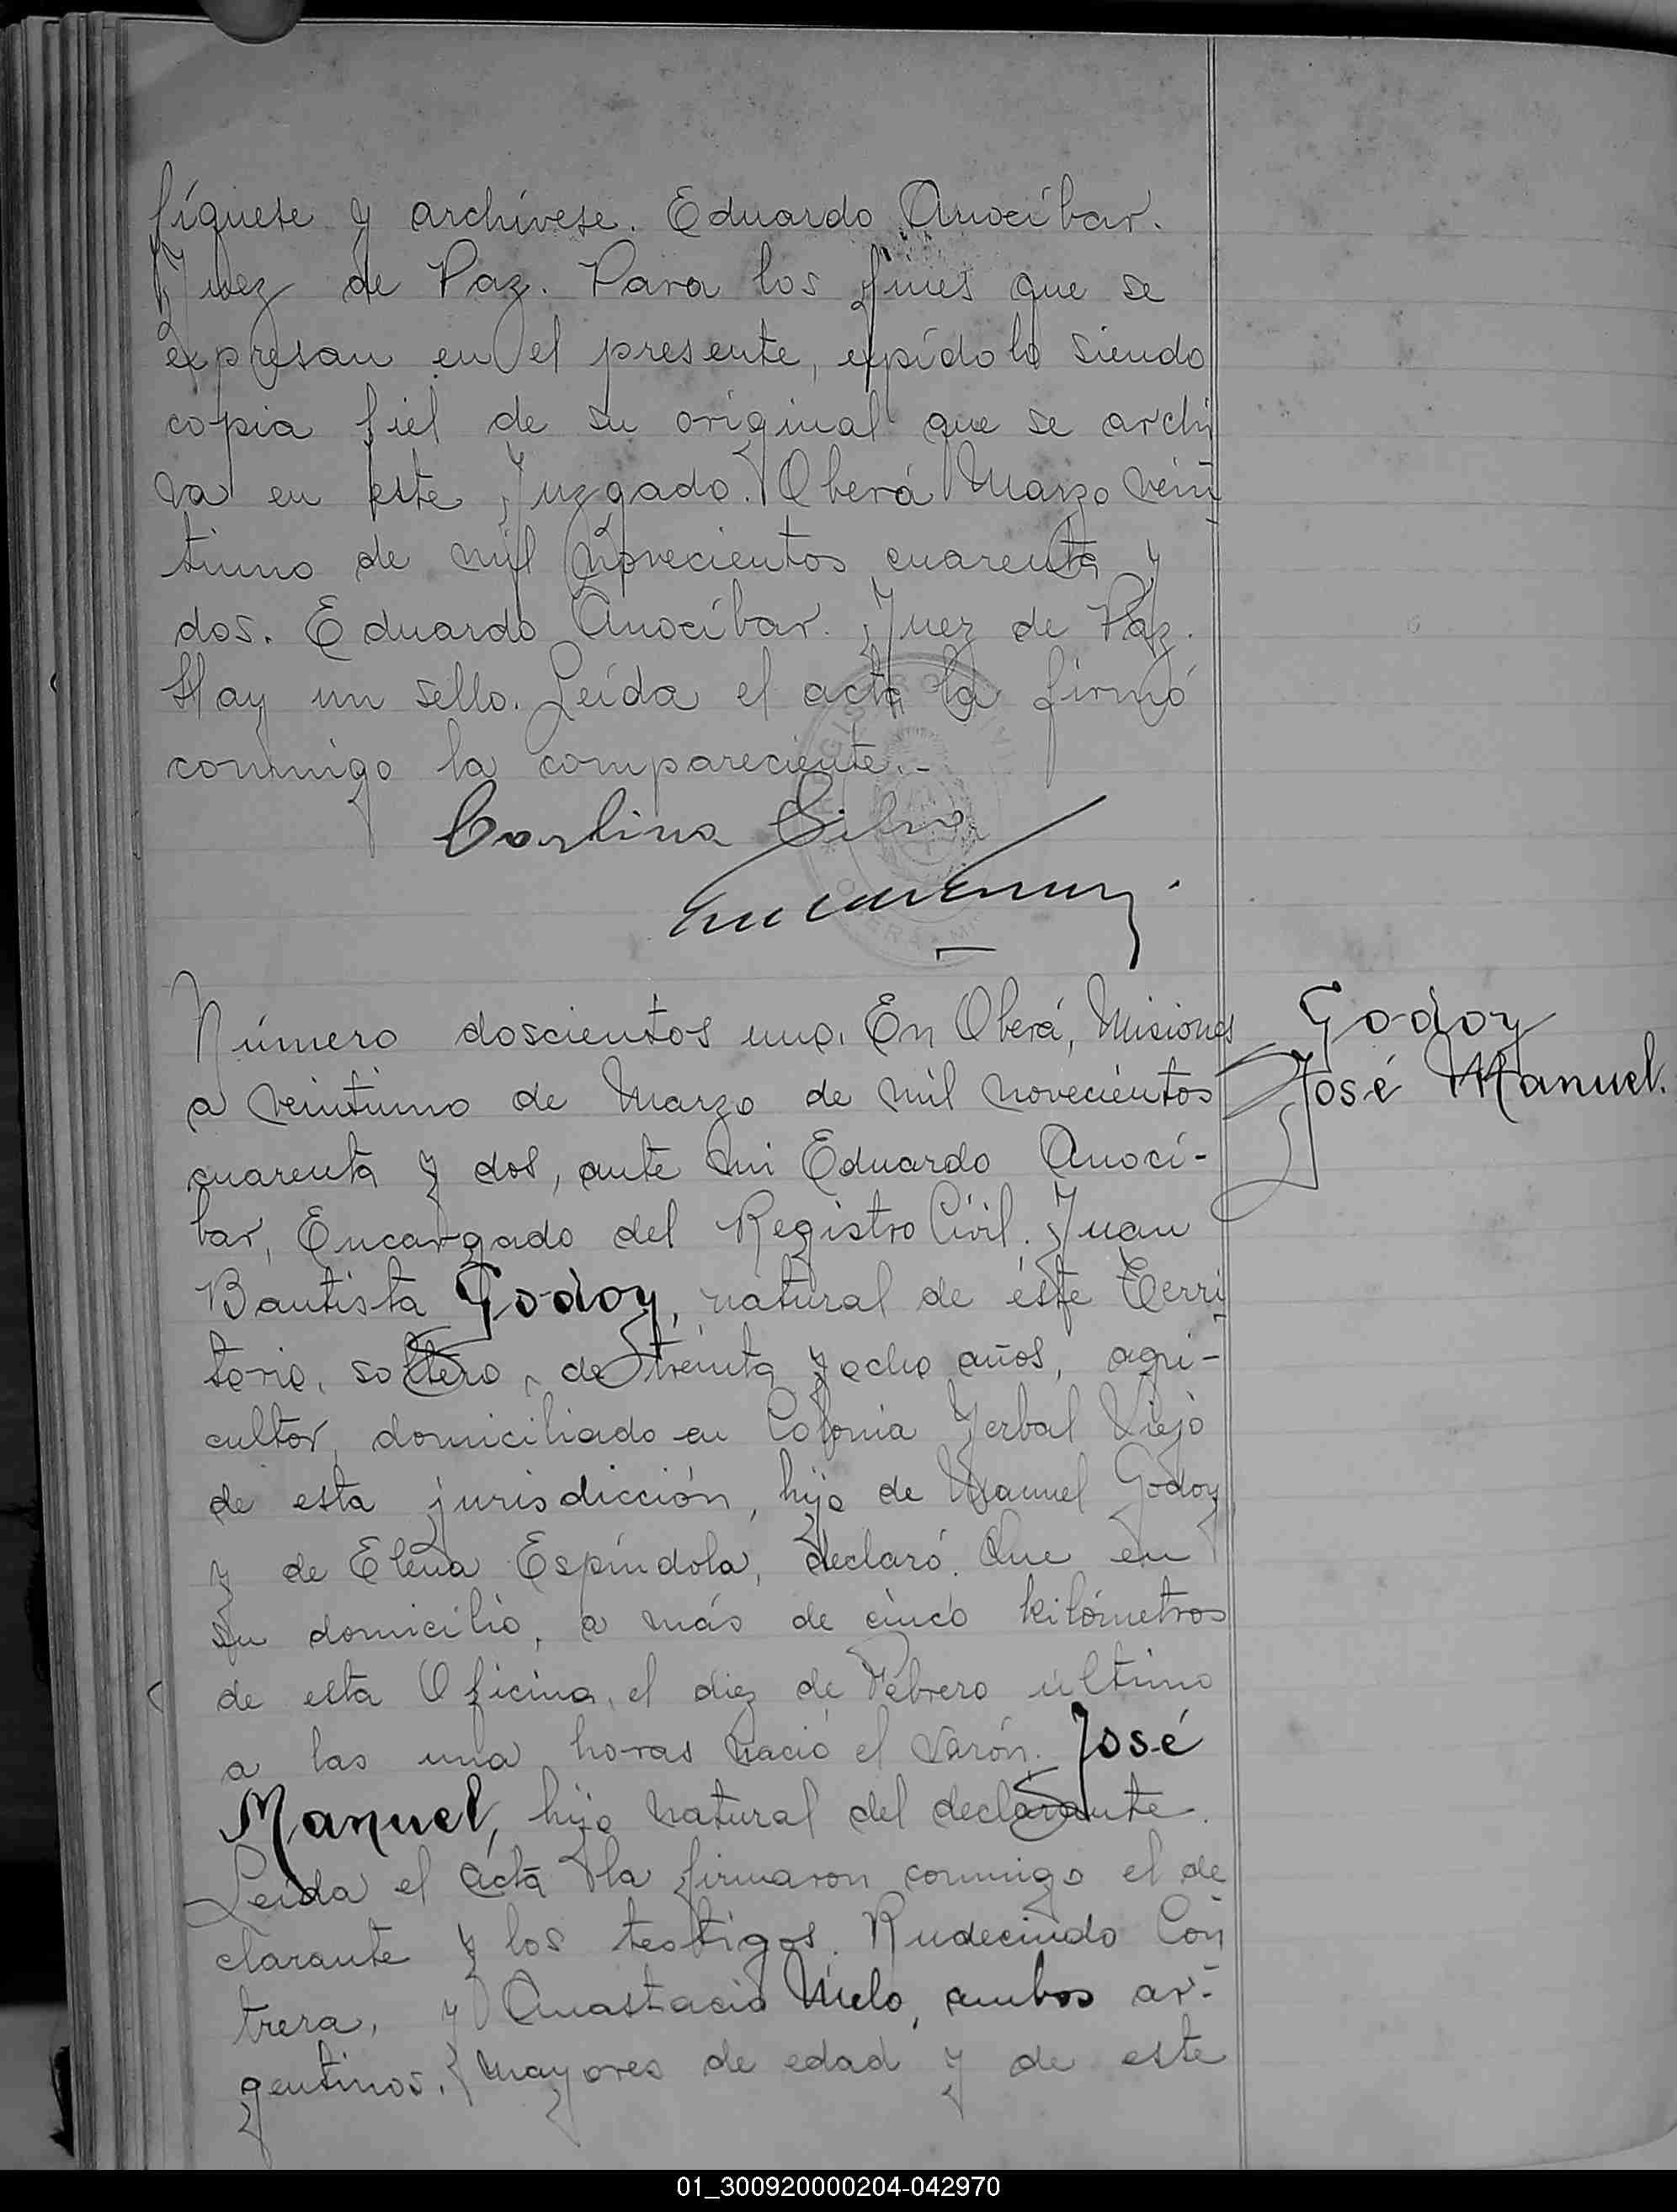 fíquese y archívese. Eduardo Anocíbar.
Juez de Paz. Para los fines que se
expresan en el presente, expídolo siendo
copia fiel de su original que se archi
va en este Juzgado. Oberá Marzo vein
tiuno de mil novecientos cuarenta y
dos. Eduardo Anocíbar. Juez de Paz.
Hay un sello. Leída el acta la firmó
conmigo la compareciente.-
Carlina Silva
Número doscientos uno. En Oberá, Misiones
Godoy
a veintiuno de Marzo de mil novecientos
José Manuel.
cuarenta y dos, ante mi Eduardo Anocí-
bar, Encargado del Registro Civil. Juan
Bautista Godoy, natural de éste Terri
torio, soltero, de treinta y ocho años, agri-
cultor, domiciliado en Colonia Yerbal Viejo
de esta jurisdicción, hijo de Manuel Godoy
y de Elena Espíndola, declaró. Que en
su domicilio, a más de cinco kilómetros
de esta Oficina, el diez de Febrero último
a las una horas nació el varón. José
Manuel, hijo natural del declarante.
Leida el acta la firmaron conmigo el de
clarante y los testigos. Rudecindo Con
trera, y Anastacio Melo, ambos ar-
gentinos, mayores de edad y de este
01_300920000204-042970